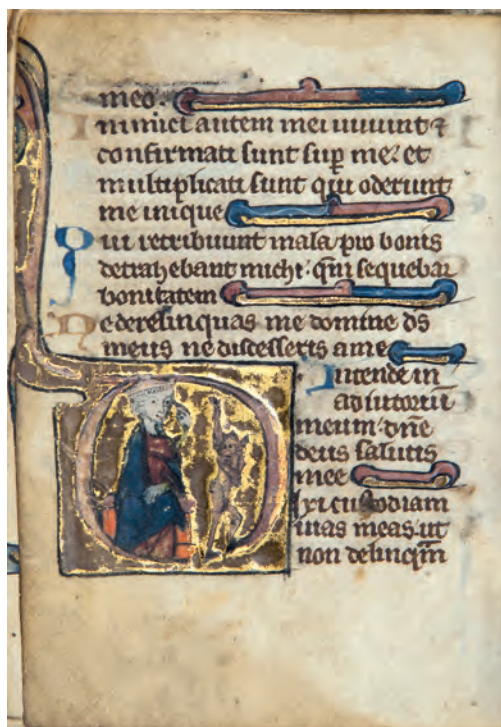 meo.
Inimici autem mei uiuunt ⁊
confirmati sunt sup me: et
multiplicati sunt qui oderunt
me inique
Qui retribuunt mala pro bonis
detrahebant michi: qm̄ sequebar
bonitatem
Ne derelinquas me domine ds
meus ne discesseris a me
Intende in
adiutoriū
meum: dn̄e
deus salutis
mee
Dixi custodiam
uias meas. ut
non delinqm̄